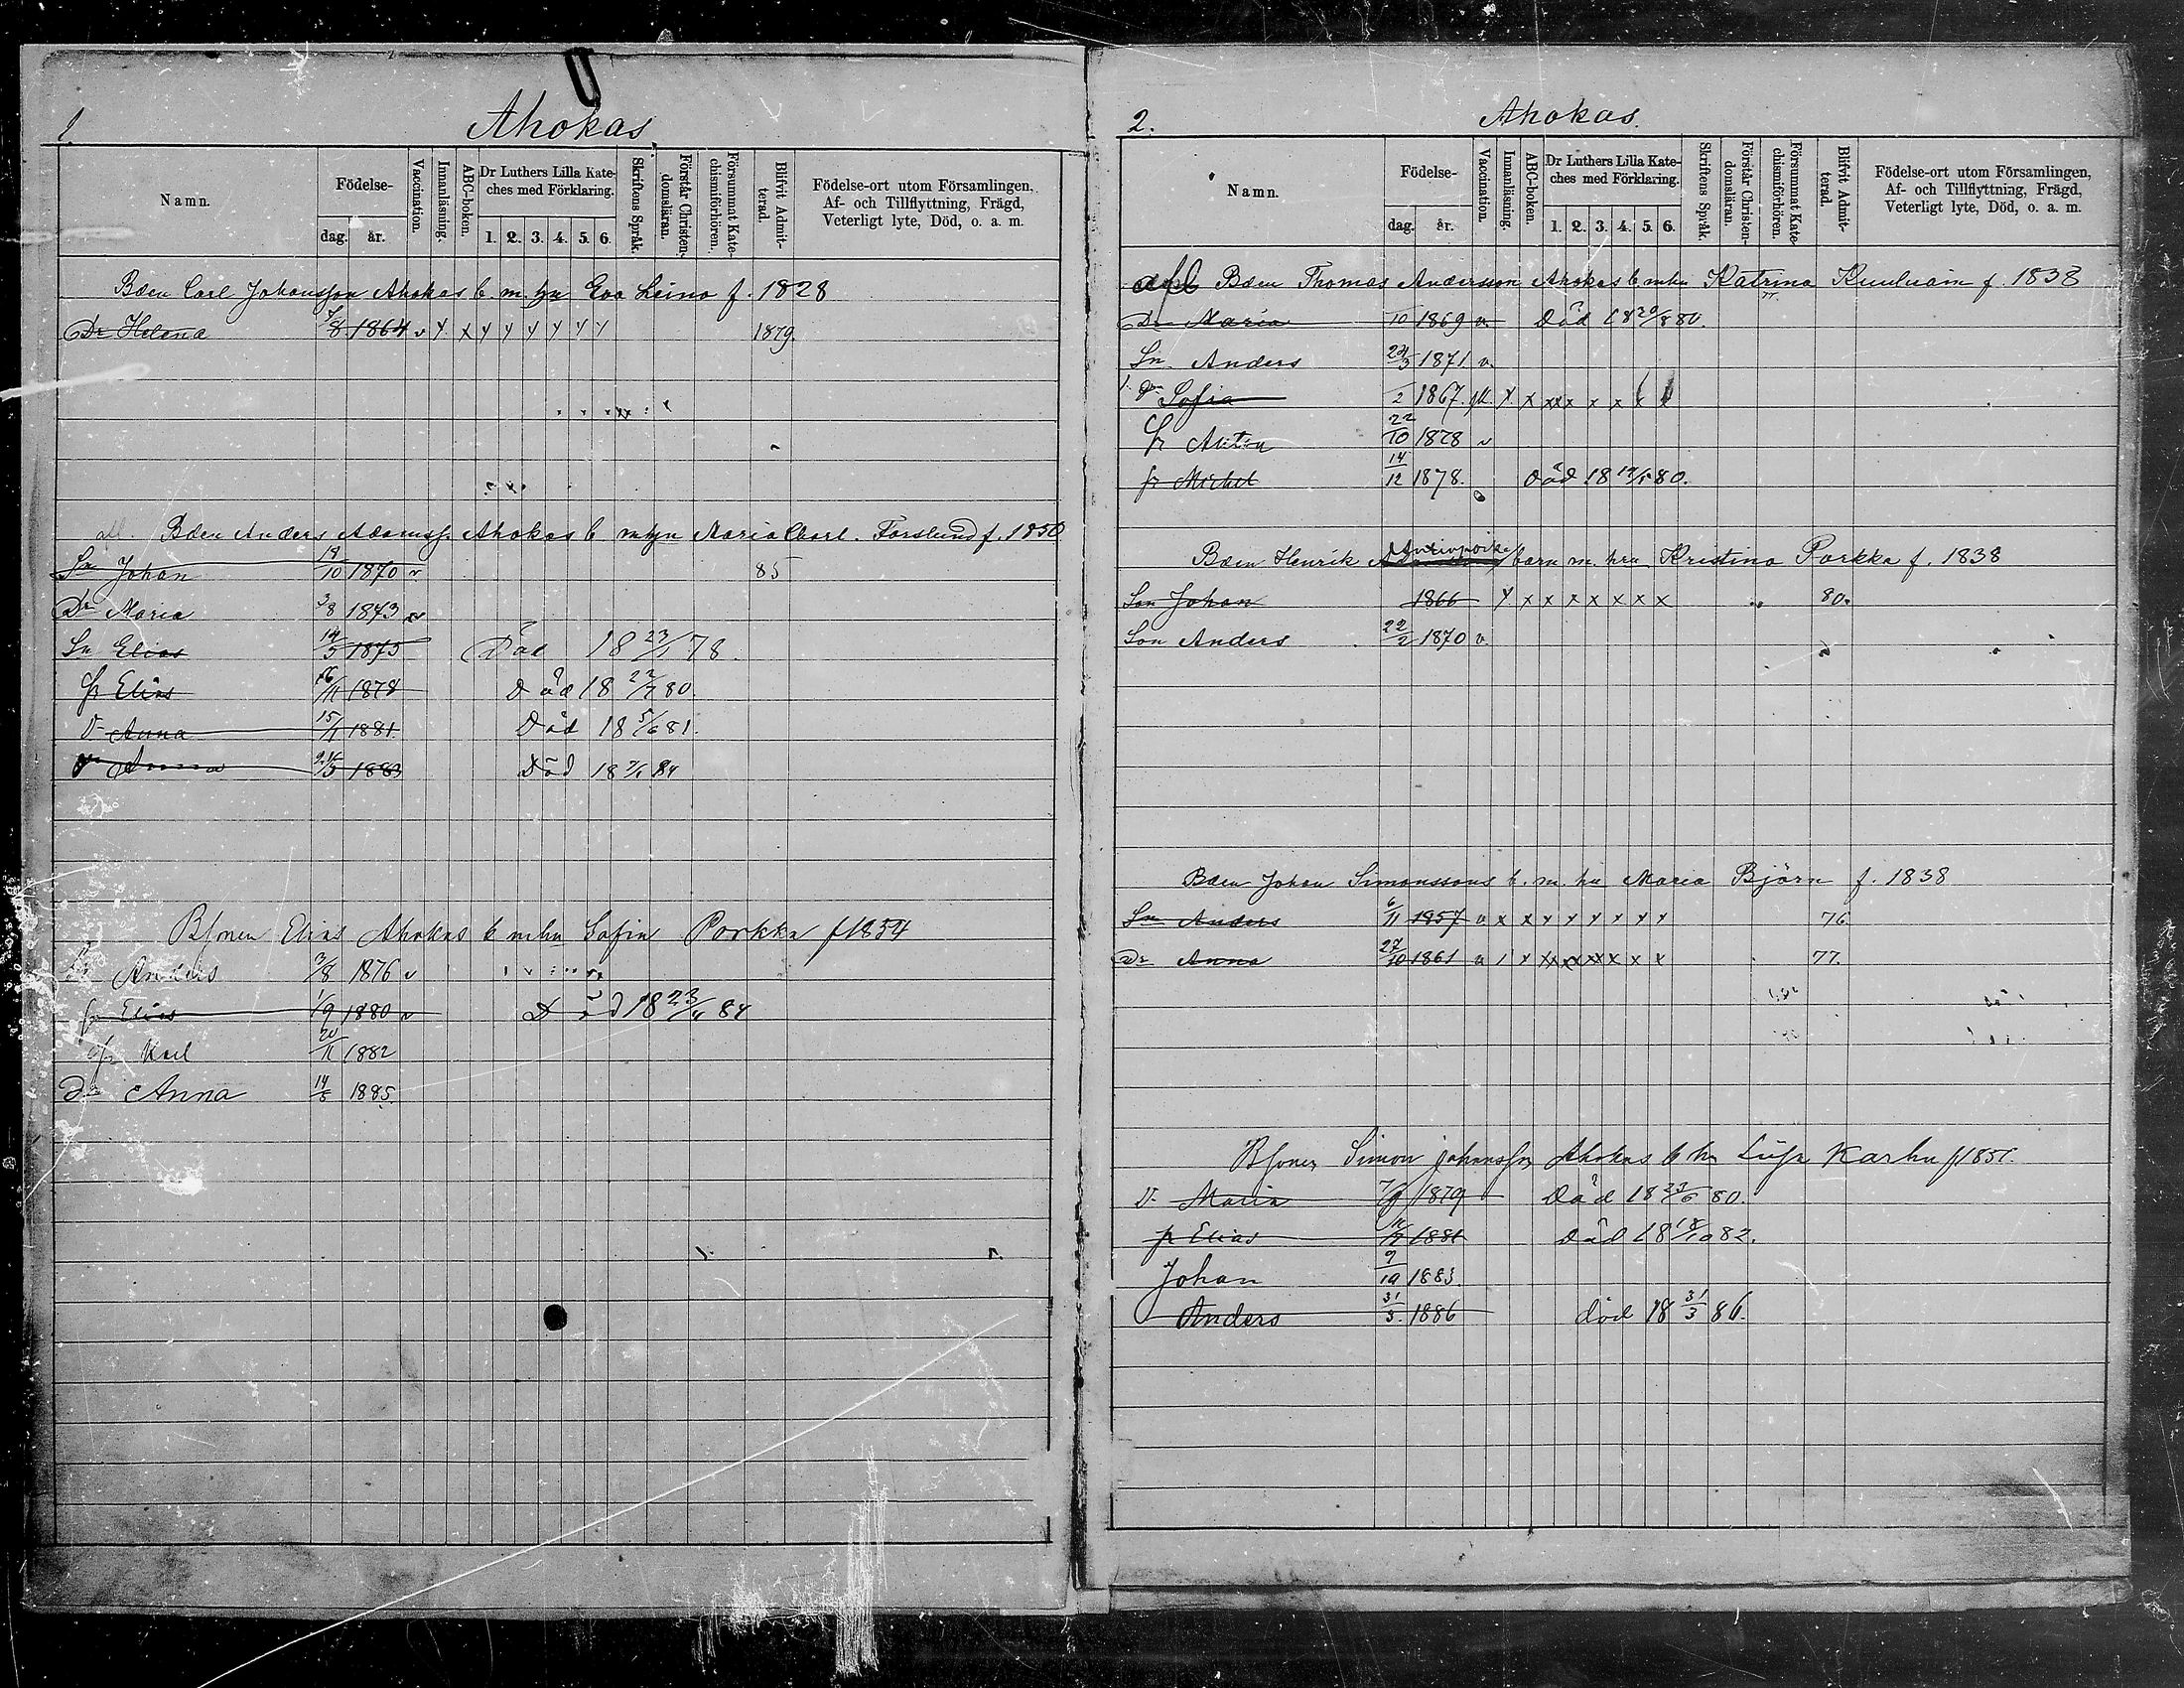 1.
Ahokas
Namn.
Födelse-
dag.
år.
Vaccination.
Innanläsning.
ABC-boken.
Dr Luthers Lilla Kate-
ches med Förklaring.
1. 2. 3. 4. 5. 6.
Skriftens Språk.
Förstår Christen-
domsläran.
Försummat Kate-
chismiförhören.
Blifvit Admit-
terad.
Födelse-ort utom Församlingen,
Af- och Tillflyttning, Frägd,
Veterligt lyte, Död, o. a. m.
Bden Carl Johansson Ahokas b. m. hu Eva Leino f. 1828
Dr Helena 8 1864 v y x y y y y y y 1879.
Bden Anders Adamss. Ahokas b mhu Maria Charl. Forslund f. 1850
Sn Johan 10 1870 v 85
Dr Maria 3/8 1873 v
Sn Elias 14/5 1875 Död 18 23/1 78.
Sr Elias 16/11 1878 Död 18 22/7 80.
Dr Anna 15/1 1881. Död 18 5/6 81.
Dr Anna 24/5 1883 Död 18 84
Bsonen Elias Ahokas b mhu Sofia Porkka f 1854
Sr Anders 3/8 1876 v
Sr Elias 1/9 1880 v Död 18 23/4 84
Sr Karl 20/11 1882
Dr Anna 14/5 1885.
2.
Ahokas.
Namn.
Födelse-
dag.
år.
Vaccination.
Innanläsning.
ABC-boken.
Dr Luthers Lilla Kate-
ches med Förklaring.
1. 2. 3. 4. 5. 6.
Skriftens Språk.
Förstår Christen-
domsläran.
Försummat Kate-
chismiförhören.
Blifvit Admit-
terad.
Födelse-ort utom Församlingen,
Af- och Tillflyttning, Frägd,
Veterligt lyte, Död, o. a. m.
Bden Thomas Andersson Ahokas b mhu Katrina f. 1838
Dr Maria 10 1869 v. Död 18 20/8 80.
Sn Anders 23/3 1871 v.
Dr Sofia 2 1867. x x xxx x x x x
Sr Anton 22/10 1878 v
Sr Michel 14/12 1878. Död 18 80.
Bden Henrik barn m. hu Kristina Porkka f. 1838
Son Johan 1866 y x x x x x x x 80.
Son Anders 22/2 1870 v.
Bden Johan Simonssons b. m. hu Maria Björn f. 1838
Sn Anders 6/11 1857 v x x y y y y y y 76.
Dr Anna 27/10 1861 v 1 x xxxxxx x x 77.
Bsonen Simon Johansson Ahokas b hu Lisa Karhu f 1857.
Dr Maria 7/9 1879 Död 18 23/6 80.
Sr Elias 1881 Död 18 18/10 82.
Johan 9/10 1883.
Anders 31/3. 1886 död 18 31/3 86.